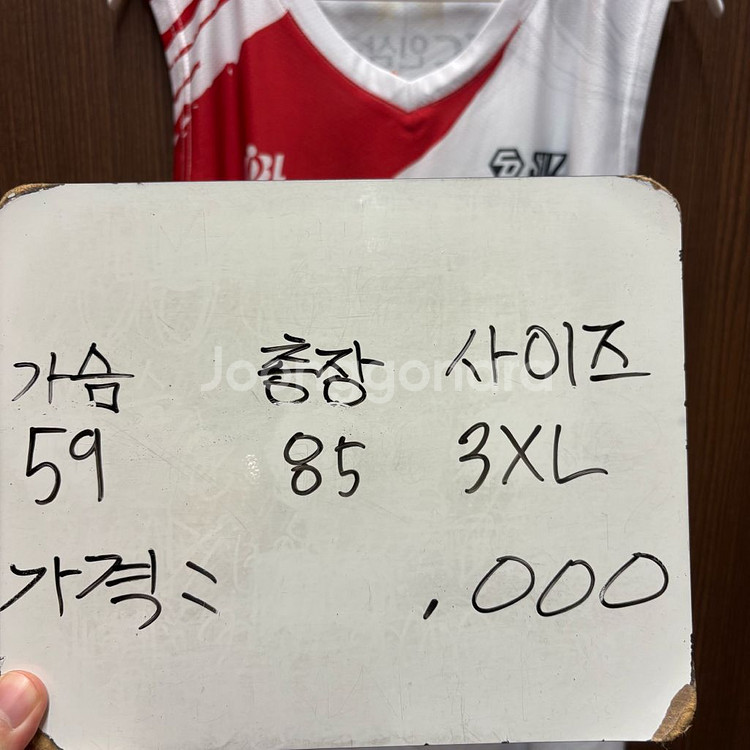 KBL SK
가슴 총장 사이즈
Joonggonara
59 85 3XL
가격: ,000